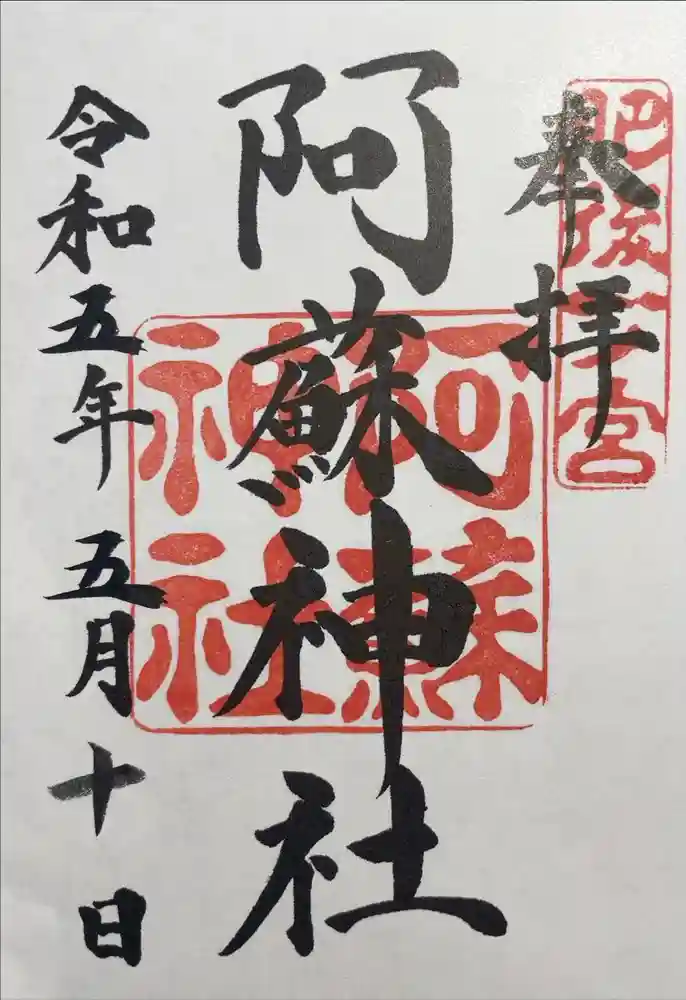 奉拝
肥後一宮
阿蘇神社
阿蘇神社
令和五年五月十日